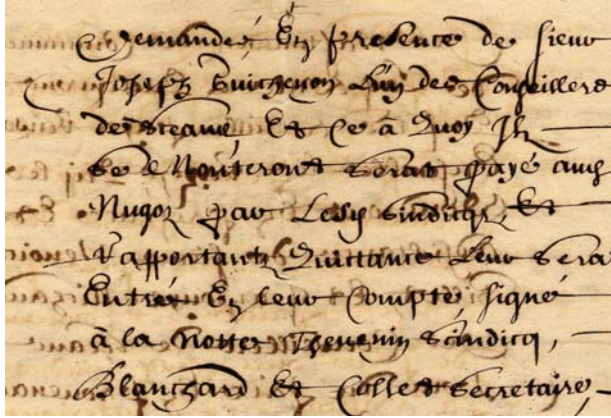 demandes En presence de sieur
Josefz Guichenon L'un des Conseillers
de sceans, Et Ce à Quoy Ilz
se Monteront Serat payé aus
Nugoz par Lesd Sindicqz Et
Rapportantz Quittance Leur Sera
Entrée En leur Compte signé
à la Notte Thevenin Scindicq,
Blanchard Et Collet Secretaire,